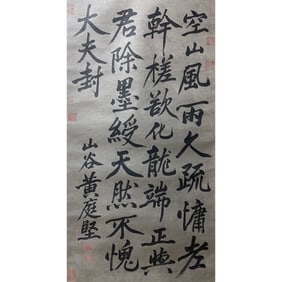 空山風雨久疏慵老
幹槎欲化龍端正與
君除墨綬天然不愧
大夫封
山谷黄庭堅